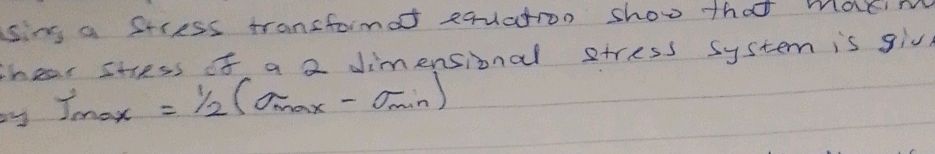 sing a stress transformat equation show that maxim
shear stress of a 2 dimensional stress system is giv
by τmax = 1/2 (σmax - σmin)